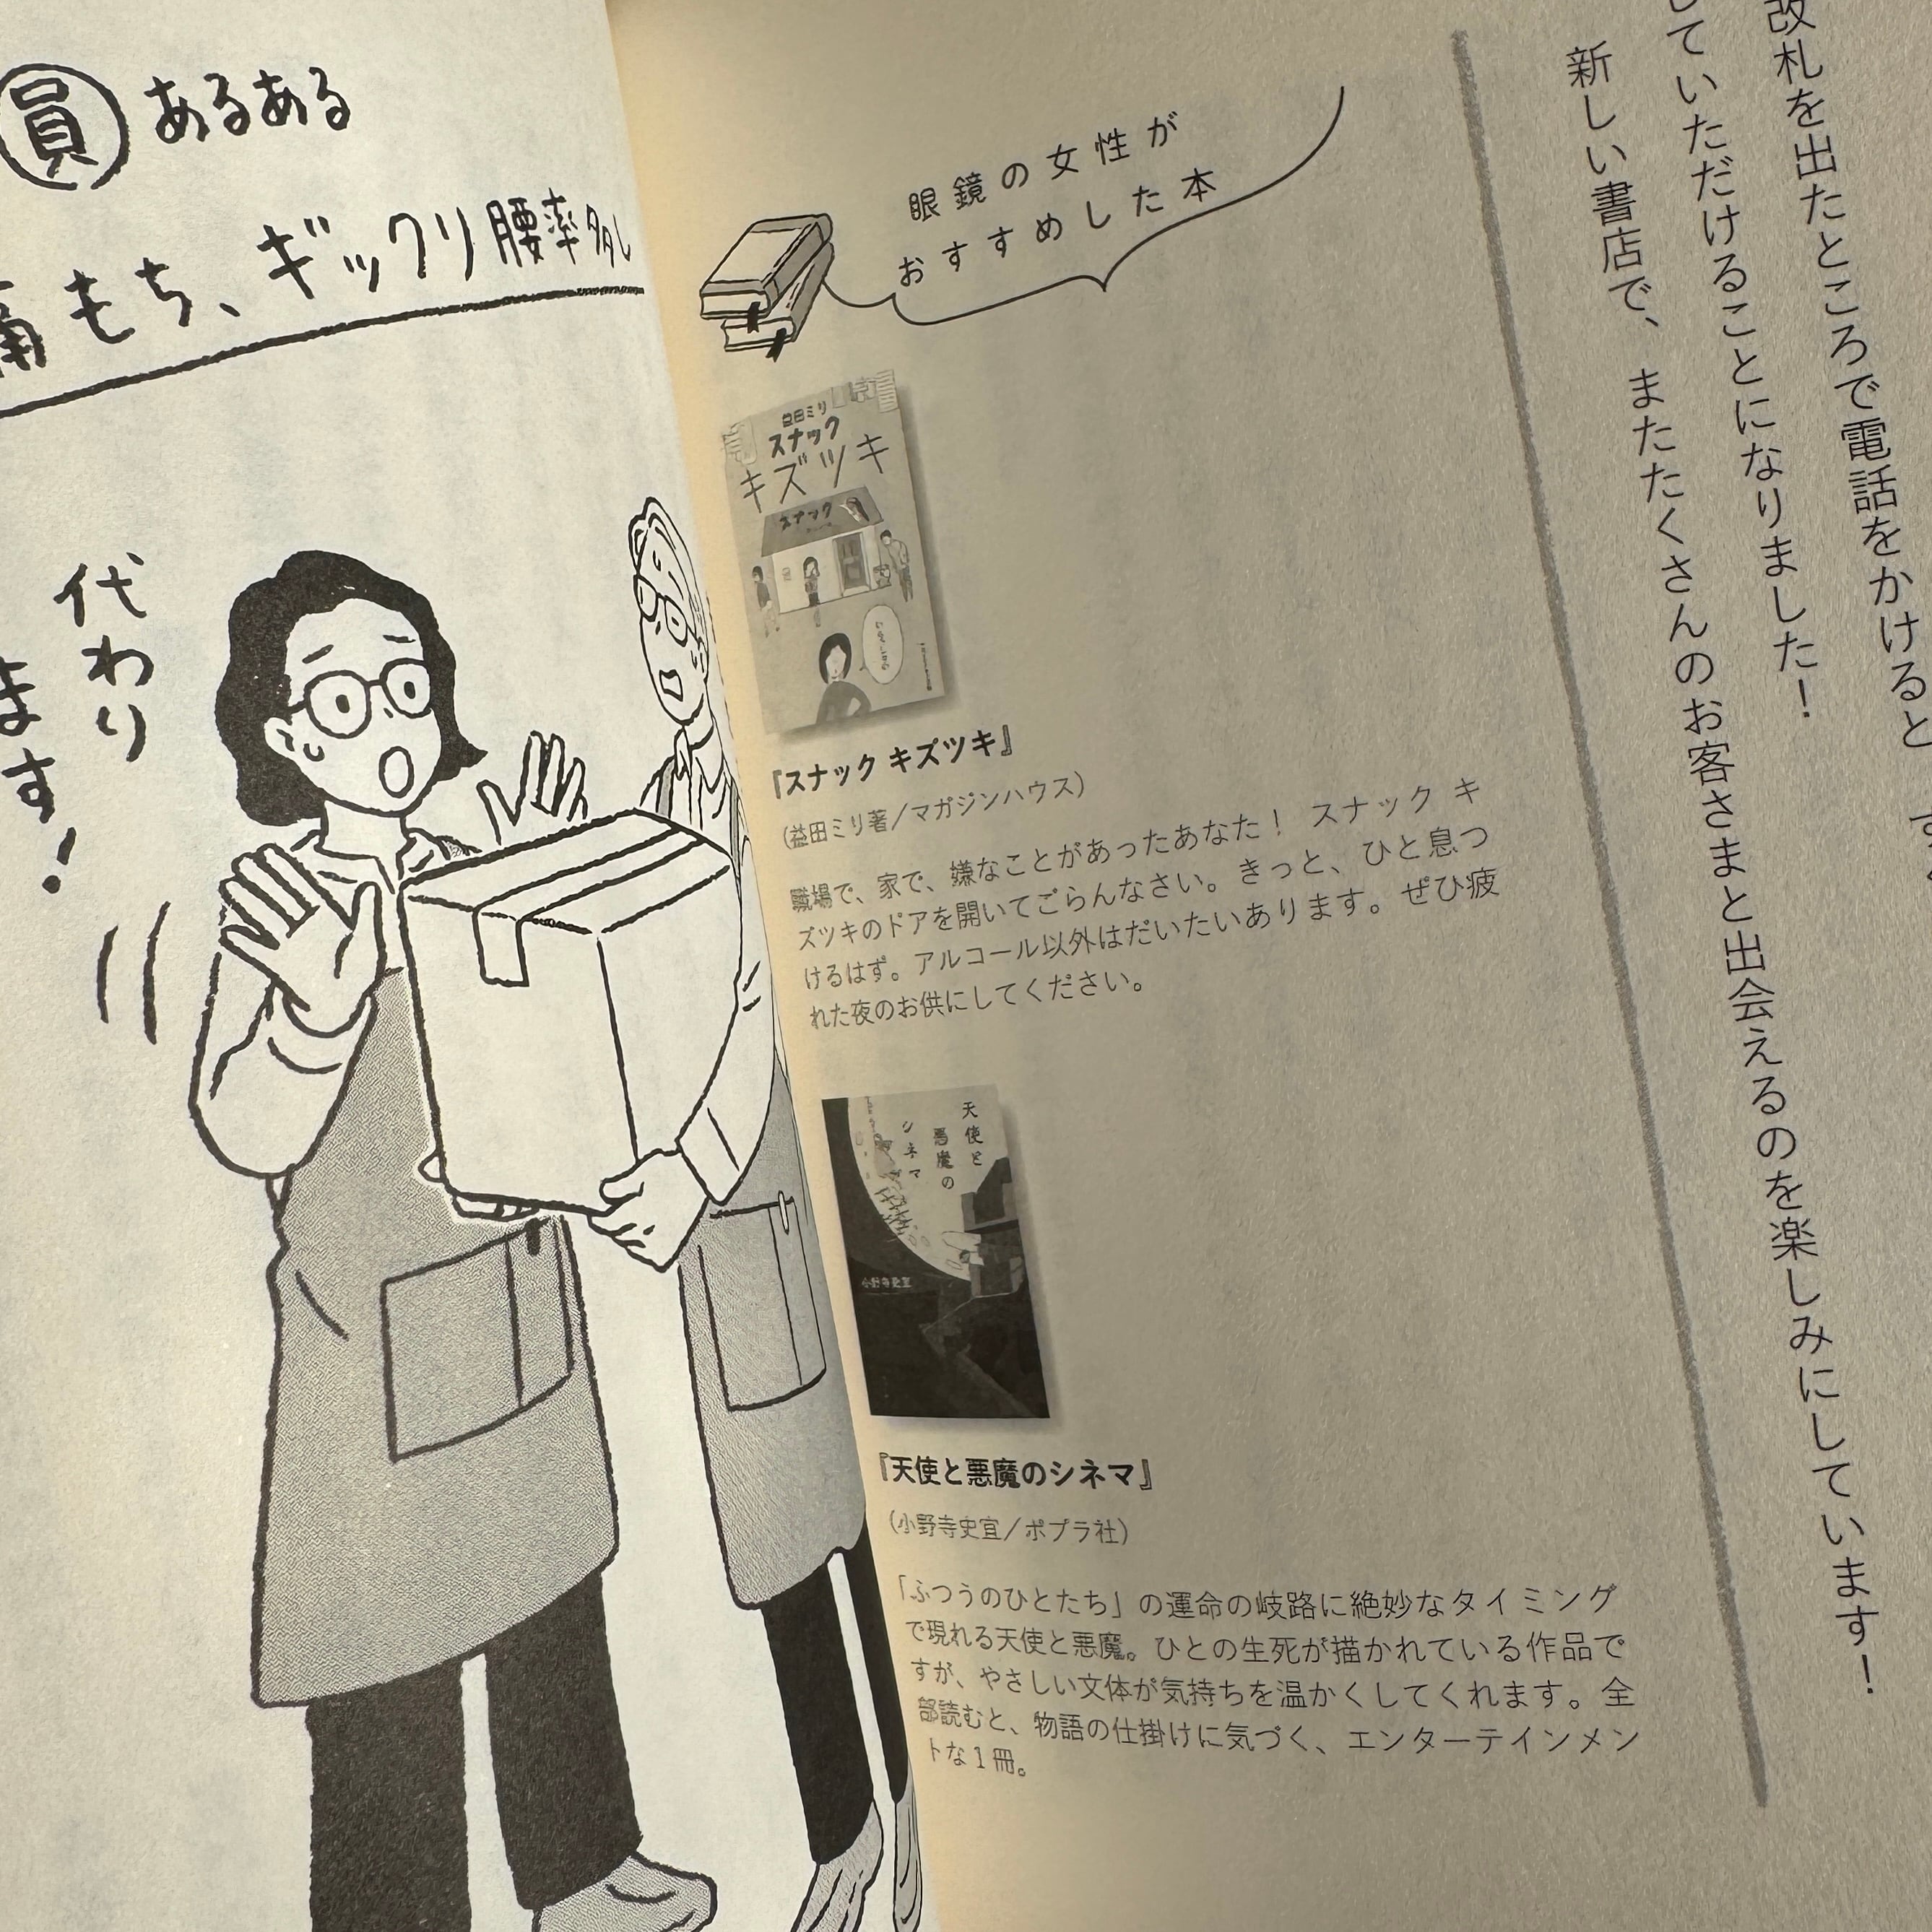 員 あるある
痛もち、ギックリ腰率多し
代わり
ます!
改札を出たところで電話をかけると
していただけることになりました!
新しい書店で、またたくさんのお客さまと出会えるのを楽しみにしています!
眼鏡の女性が
おすすめした本
益田ミリ
スナック
キズツキ
スナック
『スナック キズツキ』
(益田ミリ著/マガジンハウス)
職場で、家で、嫌なことがあったあなた! スナック キ
ズツキのドアを開いてごらんなさい。きっと、ひと息つ
けるはず。アルコール以外はだいたいあります。ぜひ疲
れた夜のお供にしてください。
天使と
悪魔の
シネマ
小野寺史宜
『天使と悪魔のシネマ』
(小野寺史宜/ポプラ社)
「ふつうのひとたち」の運命の岐路に絶妙なタイミング
で現れる天使と悪魔。ひとの生死が描かれている作品で
すが、やさしい文体が気持ちを温かくしてくれます。全
部読むと、物語の仕掛けに気づく、エンターテインメン
トな1冊。